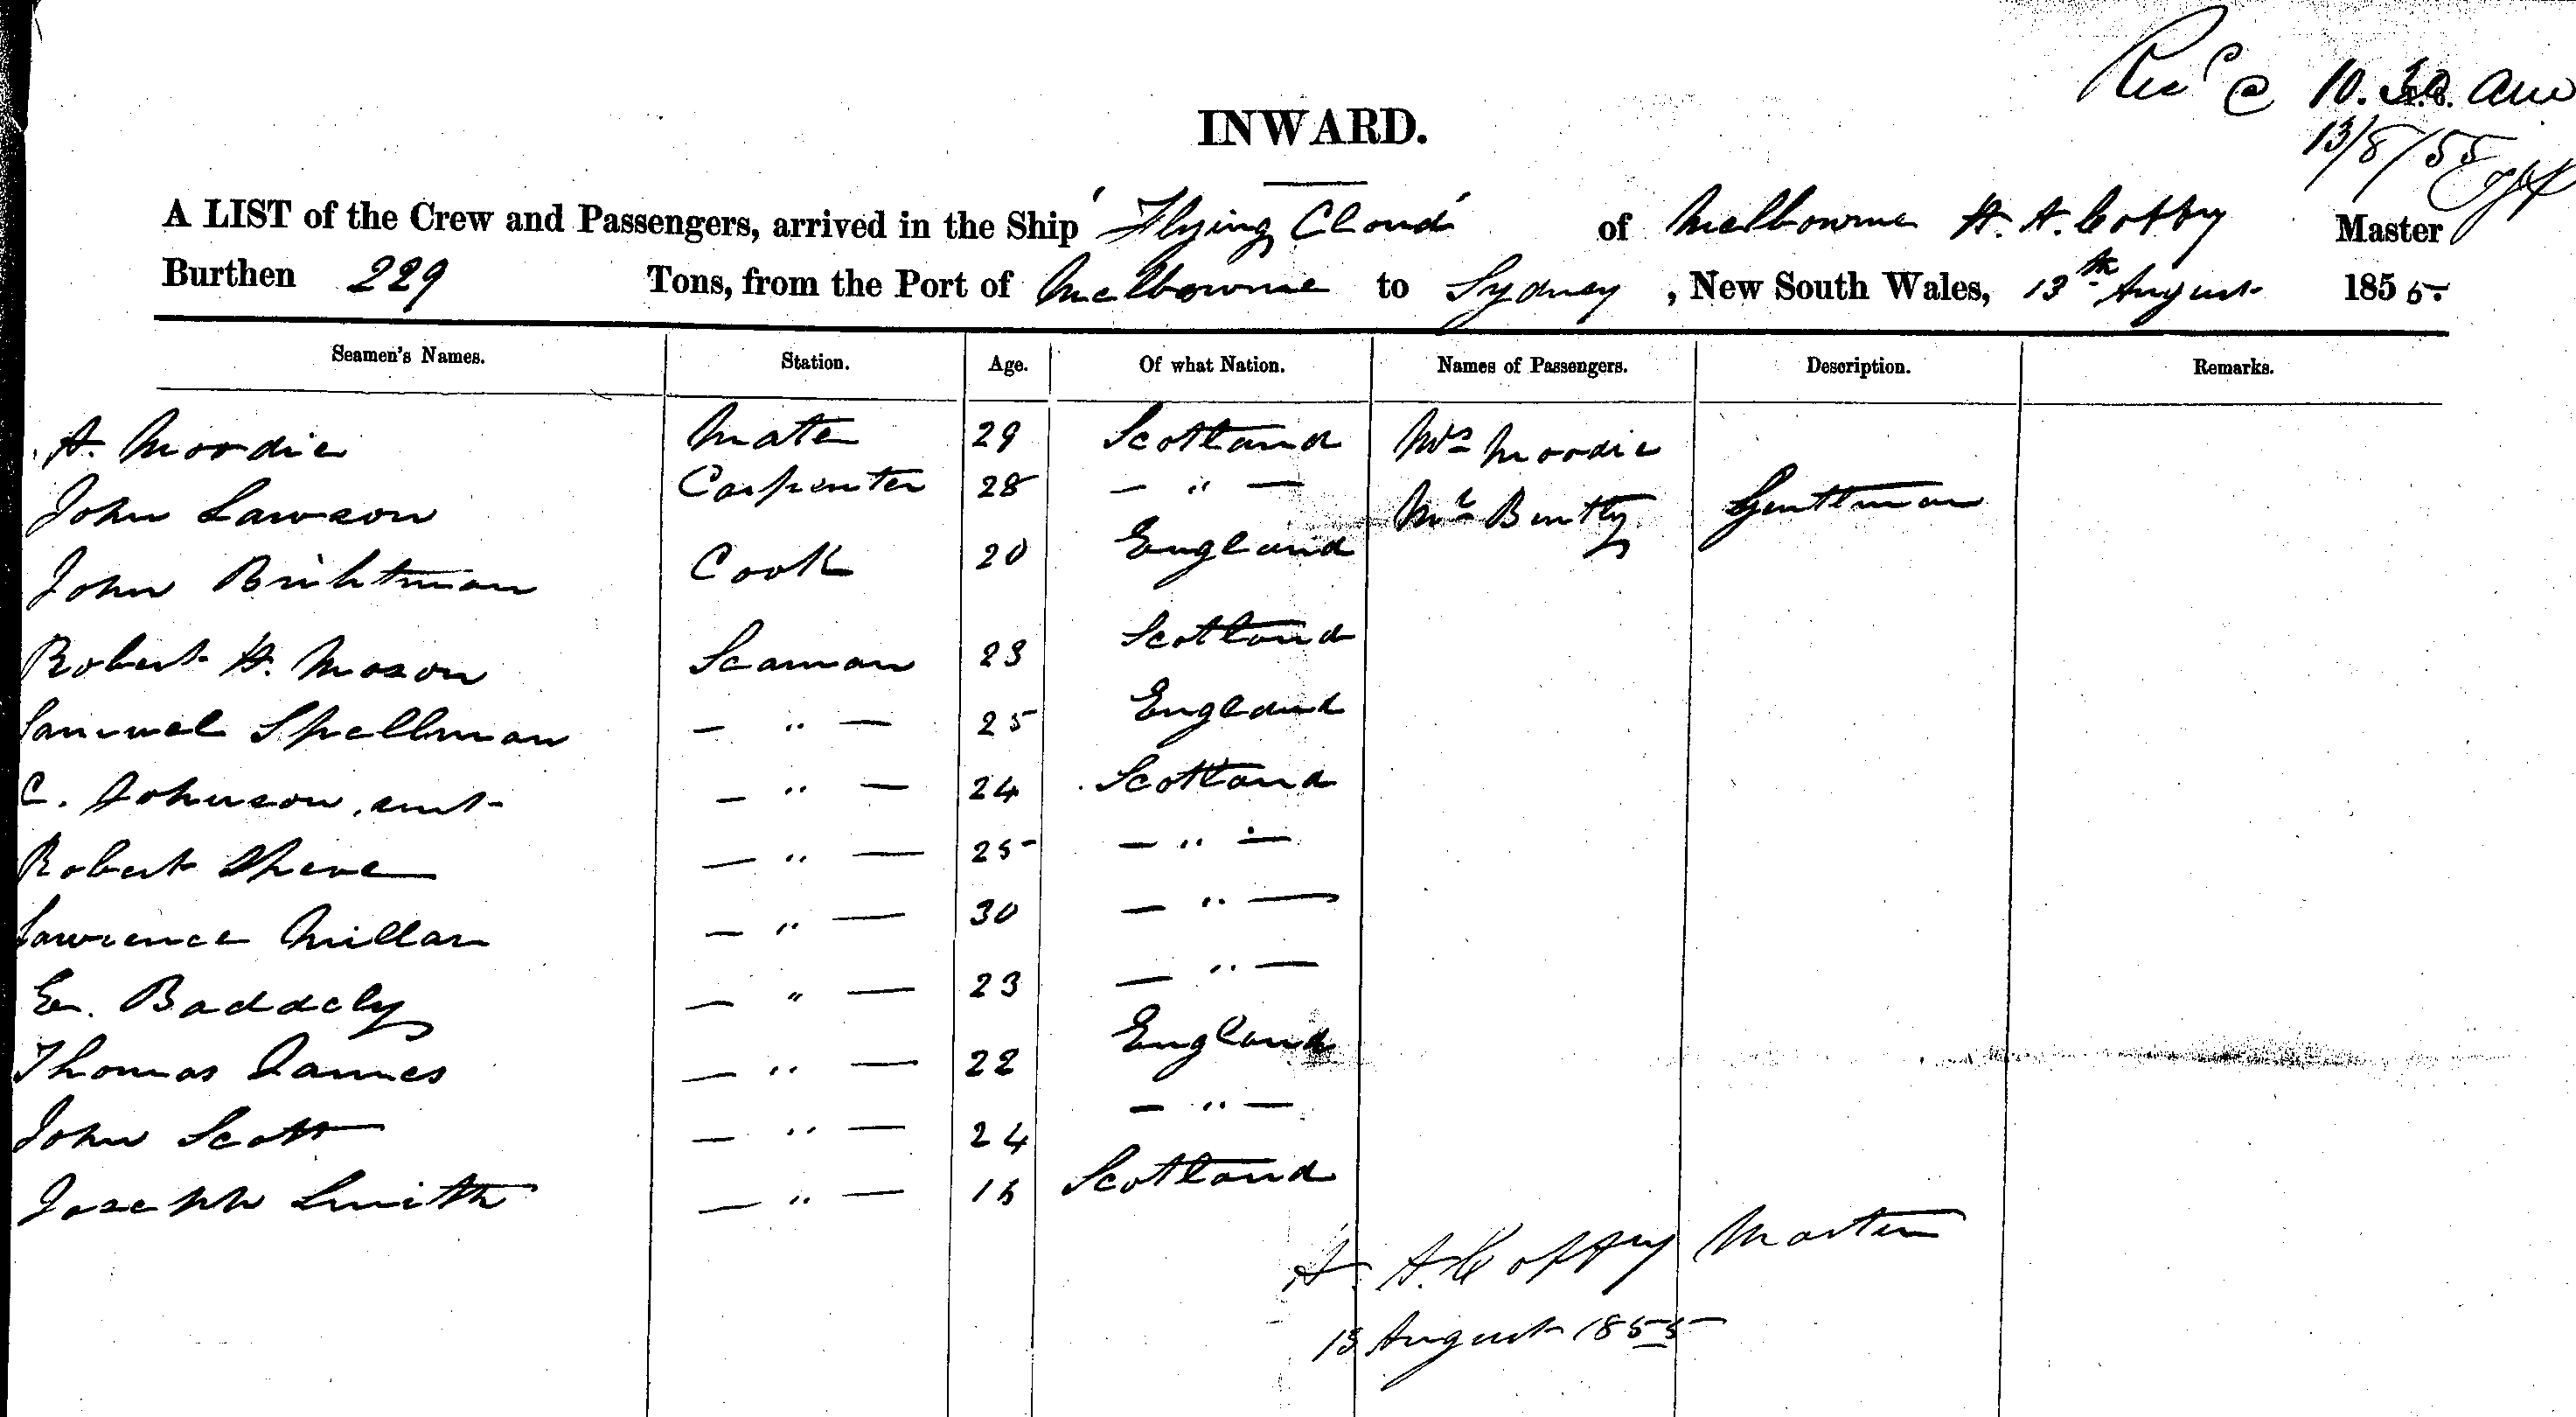 Recd @ 10.30. am
13/8/55
INWARD.
A LIST of the Crew and Passengers, arrived in the Ship 'Flying Cloud' of Melbourne A. A. Coffey Master
Burthen 229 Tons, from the Port of Melbourne to Sydney, New South Wales, 13th August 1855.
Seamen's Names. Station. Age. Of what Nation. Names of Passengers. Description. Remarks.
A. Moodie Mate 29 Scotland Mrs Moodie
John Lawson Carpenter 28 — " — Mr Bently Gentleman
John Brihtman Cook 20 England
Robert H. Mason Seaman 23 Scotland
Samuel Spellman — " — 25 England
C. Johnson — " — 24 Scotland
Robert — " — 25 — " —
Lawrence Millar — " — 30 — " —
E. Baddely — " — 23 — " —
Thomas James — " — 22 England
John Scott — " — 24 — " —
Joseph Smith — " — 16 Scotland
A. A. Coffey Master
13 August 1855